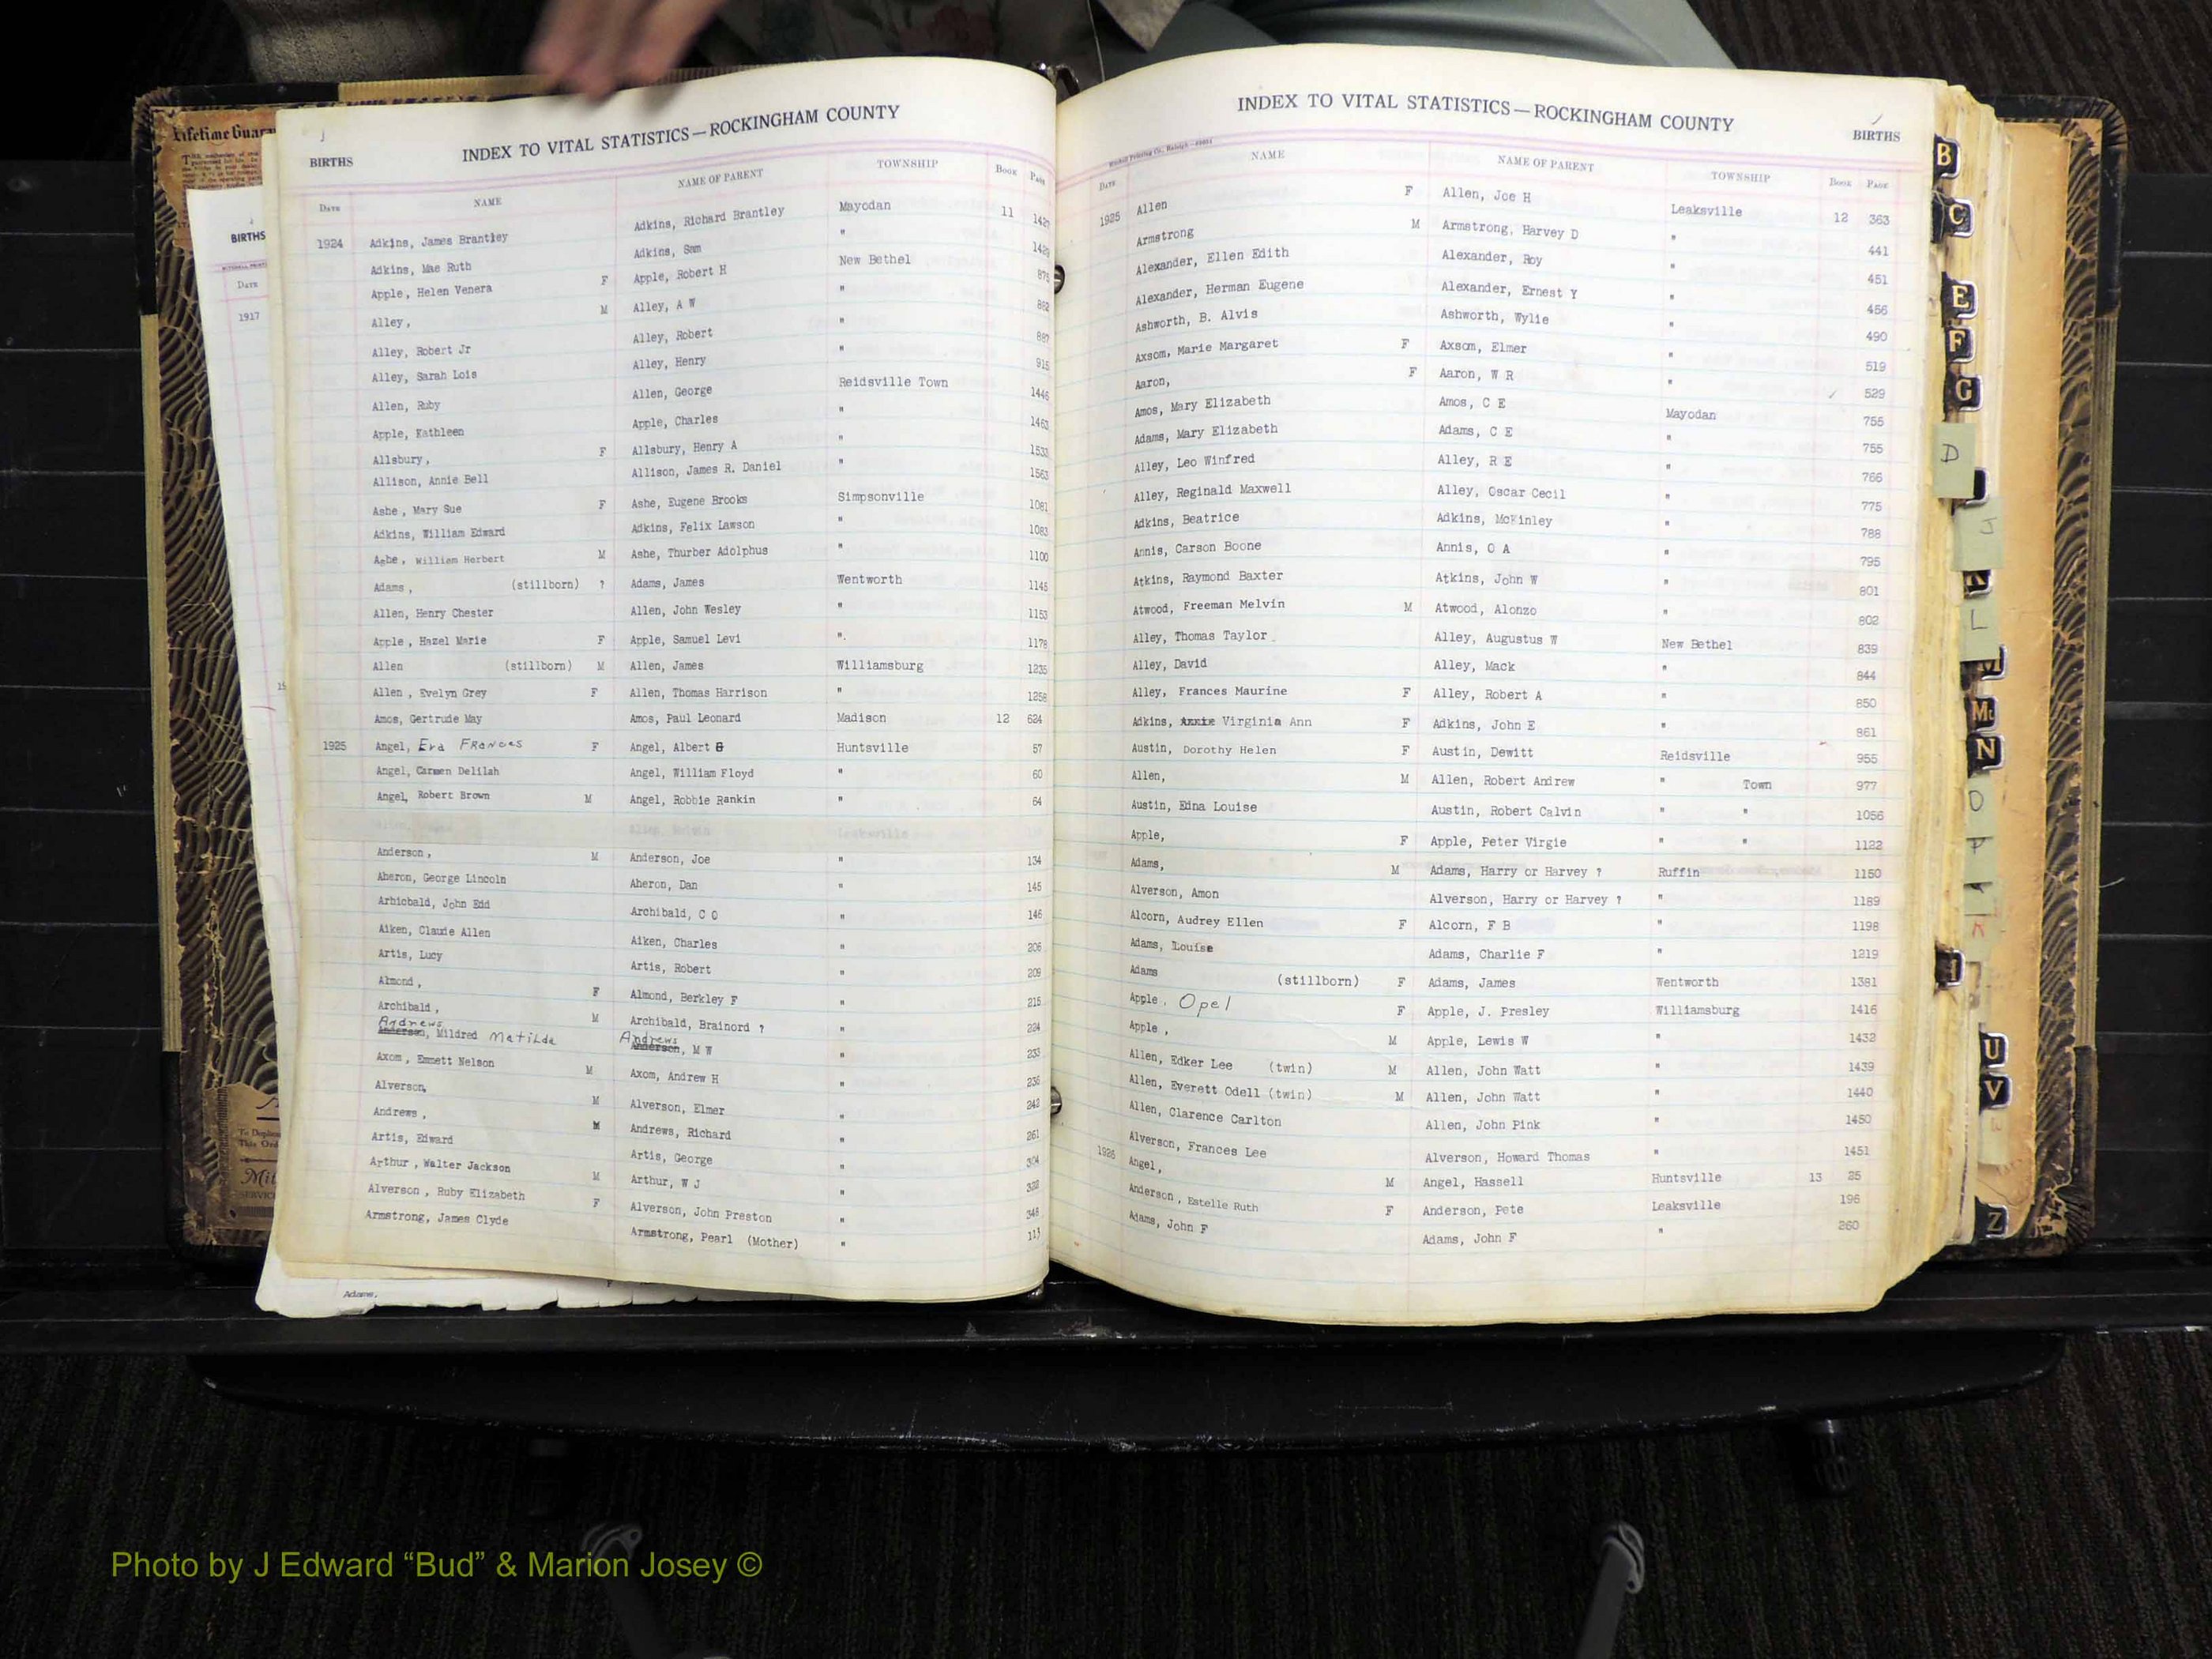 Lifetime Guara
BIRTHS
Date
1917
15
Adams,
To Duplic
This Ord
Mit
SERVICE
BIRTHS
INDEX TO VITAL STATISTICS—ROCKINGHAM COUNTY
Date NAME NAME OF PARENT TOWNSHIP Book Page
1924 Adkins, James Brantley Adkins, Richard Brantley Mayodan 11 1427
Adkins, Mae Ruth Adkins, Sam " 1429
Apple, Helen Venera F Apple, Robert H New Bethel 875
Alley, M Alley, A W " 882
Alley, Robert Jr Alley, Robert " 887
Alley, Sarah Lois Alley, Henry " 915
Allen, Ruby Allen, George Reidsville Town 1446
Apple, Kathleen Apple, Charles " 1463
Allsbury, F Allsbury, Henry A " 1533
Allison, Annie Bell Allison, James R. Daniel " 1563
Ashe, Mary Sue F Ashe, Eugene Brooks Simpsonville 1081
Adkins, William Edward Adkins, Felix Lawson " 1083
Ashe, William Herbert M Ashe, Thurber Adolphus " 1100
Adams, (stillborn) ? Adams, James Wentworth 1145
Allen, Henry Chester Allen, John Wesley " 1153
Apple, Hazel Marie F Apple, Samuel Levi ". 1178
Allen (stillborn) M Allen, James Williamsburg 1235
Allen, Evelyn Grey F Allen, Thomas Harrison " 1258
Amos, Gertrude May Amos, Paul Leonard Madison 12 624
1925 Angel, Era Frances F Angel, Albert Huntsville 57
Angel, Carmen Delilah Angel, William Floyd " 60
Angel, Robert Brown M Angel, Robbie Rankin " 64
Anderson, M Anderson, Joe " 134
Aheron, George Lincoln Aheron, Dan " 145
Arhicbald, John Edd Archibald, C O " 146
Aiken, Claude Allen Aiken, Charles " 206
Artis, Lucy Artis, Robert " 209
Almond, F Almond, Berkley F " 215
Archibald, M Archibald, Brainord ? " 224
Andrews Andrews
Anderson, Mildred Matilda Anderson, M W " 233
Axom, Emmett Nelson M Axom, Andrew H " 236
Alverson, M Alverson, Elmer " 242
Andrews, M Andrews, Richard " 261
Artis, Edward Artis, George " 304
Arthur, Walter Jackson M Arthur, W J " 322
Alverson, Ruby Elizabeth F Alverson, John Preston " 348
Armstrong, James Clyde Armstrong, Pearl (Mother) " 113
INDEX TO VITAL STATISTICS—ROCKINGHAM COUNTY
BIRTHS
Date NAME NAME OF PARENT TOWNSHIP Book Page
1925 Allen F Allen, Joe H Leaksville 12 363
Armstrong M Armstrong, Harvey D " 441
Alexander, Ellen Edith Alexander, Roy " 451
Alexander, Herman Eugene Alexander, Ernest Y " 456
Ashworth, B. Alvis Ashworth, Wylie " 490
Axsom, Marie Margaret F Axsom, Elmer " 519
Aaron, F Aaron, W R " 529
Amos, Mary Elizabeth Amos, C E Mayodan 755
Adams, Mary Elizabeth Adams, C E " 755
Alley, Leo Winfred Alley, R E " 766
Alley, Reginald Maxwell Alley, Oscar Cecil " 775
Adkins, Beatrice Adkins, McKinley " 788
Annis, Carson Boone Annis, O A " 795
Atkins, Raymond Baxter Atkins, John W " 801
Atwood, Freeman Melvin M Atwood, Alonzo " 802
Alley, Thomas Taylor Alley, Augustus W New Bethel 839
Alley, David Alley, Mack " 844
Alley, Frances Maurine F Alley, Robert A " 850
Adkins, Virginia Ann F Adkins, John E " 861
Austin, Dorothy Helen F Austin, Dewitt Reidsville 955
Allen, M Allen, Robert Andrew " Town 977
Austin, Edna Louise Austin, Robert Calvin " " 1056
Apple, F Apple, Peter Virgie " " 1122
Adams, M Adams, Harry or Harvey ? Ruffin 1150
Alverson, Amon Alverson, Harry or Harvey ? " 1189
Alcorn, Audrey Ellen F Alcorn, F B " 1198
Adams, Louise Adams, Charlie F " 1219
Adams (stillborn) F Adams, James Wentworth 1381
Apple, Opel F Apple, J. Presley Williamsburg 1416
Apple, M Apple, Lewis W " 1432
Allen, Edker Lee (twin) M Allen, John Watt " 1439
Allen, Everett Odell (twin) M Allen, John Watt " 1440
Allen, Clarence Carlton Allen, John Pink " 1450
Alverson, Frances Lee Alverson, Howard Thomas " 1451
1926 Angel, M Angel, Hassell Huntsville 13 25
Anderson, Estelle Ruth F Anderson, Pete Leaksville 196
Adams, John F Adams, John F " 260
B
C
E
F
G
D
J
K
L
M
Mc
N
O
P
R
U
V
Z
Photo by J Edward “Bud” & Marion Josey ©